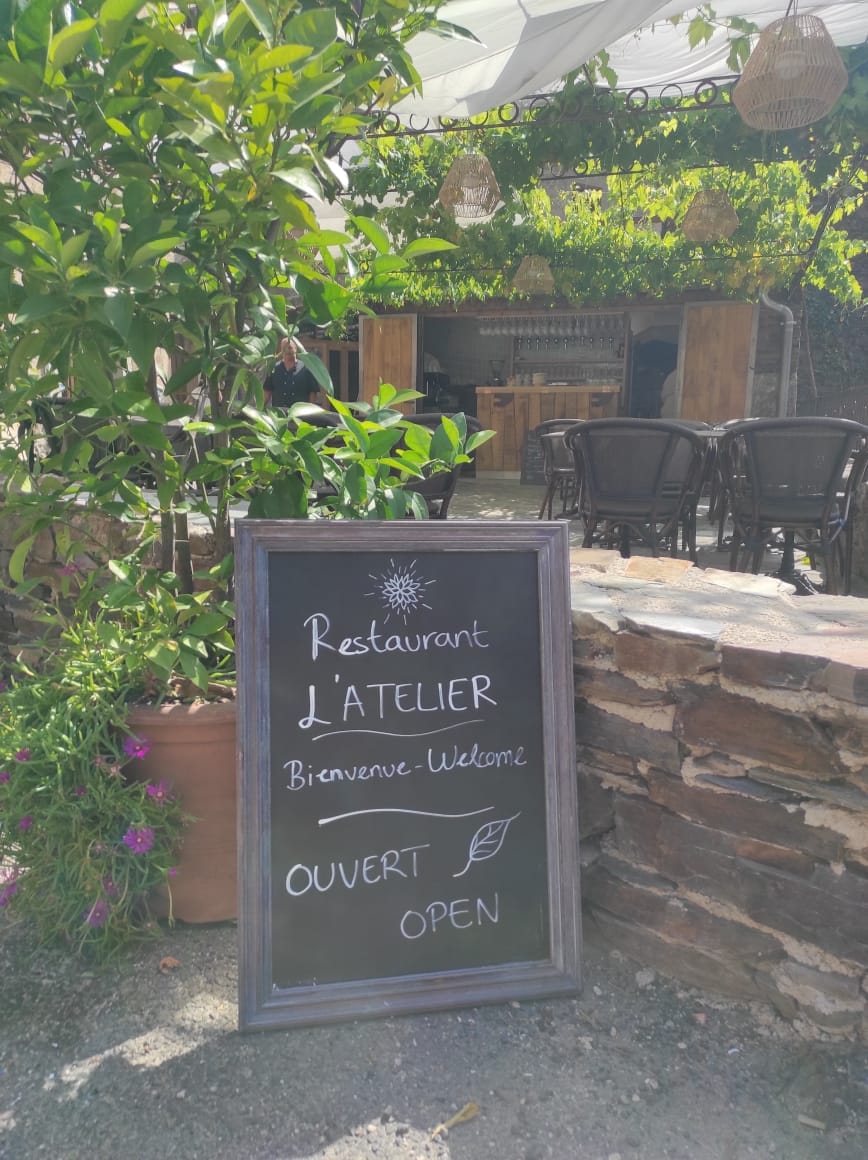 Restaurant
L'ATELIER
Bienvenue - Welcome
OUVERT
OPEN